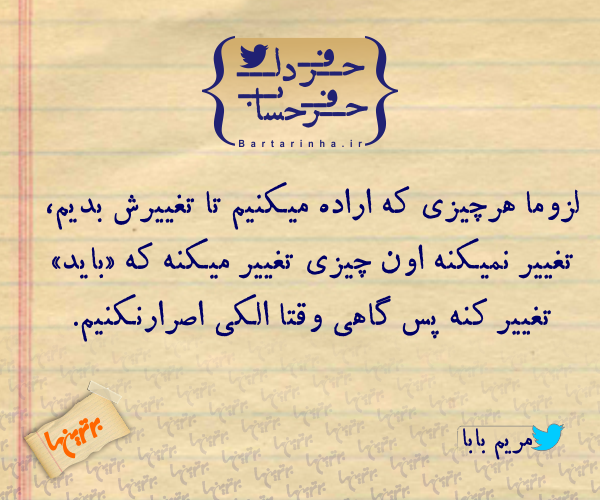 حرف دل
حرف حساب
Bartarinha.ir
لزوما هرچیزی که اراده میکنیم تا تغییرش بدیم،
تغییر نمیکنه اون چیزی تغییر میکنه که «باید»
تغییر کنه پس گاهی وقتا الکی اصرارنکنیم.
برترین‌ها
مریم بابا